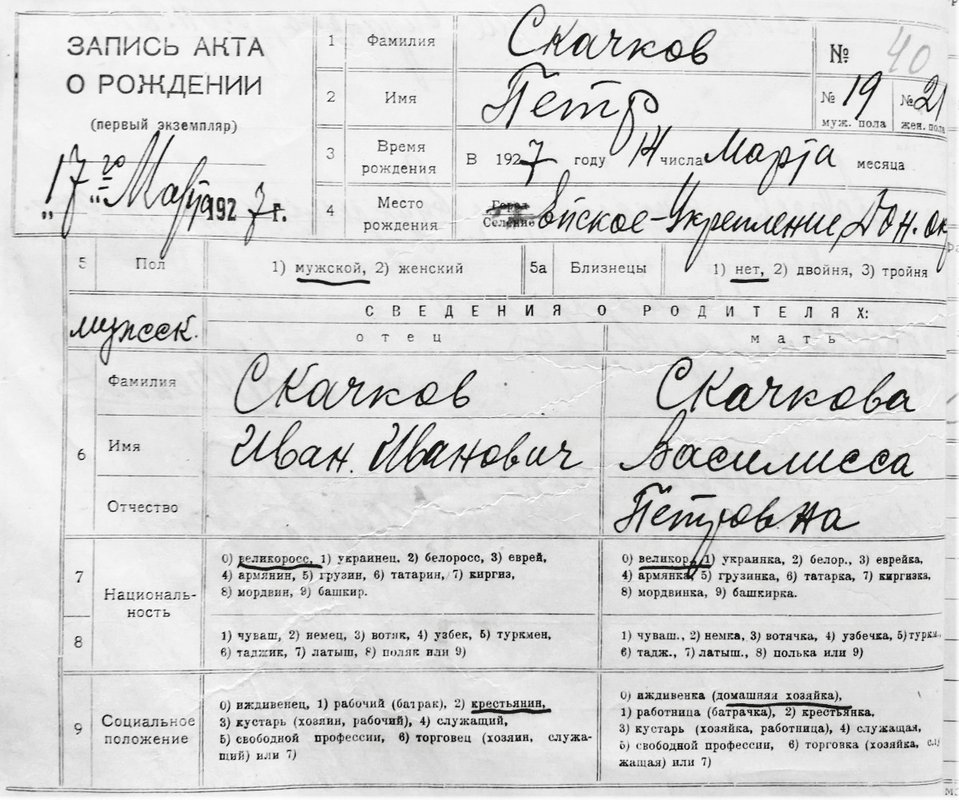 ЗАПИСЬ АКТА
О РОЖДЕНИИ
(первый экземпляр)
„17го" Марта 1927 г.
1 Фамилия Скачков
2 Имя Петр
№ 40
№ 19 муж. пола
№ 21 жен. пола
3 Время рождения В 1927 году 14 числа Марта месяца
4 Место рождения Город Селение Ейское-Укрепление, Дон. ок
5 Пол 1) мужской, 2) женский 5а Близнецы 1) нет, 2) двойня, 3) тройня
мужск.
СВЕДЕНИЯ О РОДИТЕЛЯХ:
отец мать
6
Фамилия Скачков Скачкова
Имя Иван Иванович Василисса
Отчество Петровна
7 8 Националь-
ность
0) великоросс, 1) украинец, 2) белоросс, 3) еврей,
4) армянин, 5) грузин, 6) татарин, 7) киргиз,
8) мордвин, 9) башкир.
0) великор., 1) украинка, 2) белор., 3) еврейка,
4) армянка, 5) грузинка, 6) татарка, 7) киргизка,
8) мордвинка, 9) башкирка.
1) чуваш, 2) немец, 3) вотяк, 4) узбек, 5) туркмен,
6) таджик, 7) латыш, 8) поляк или 9)
1) чуваш., 2) немка, 3) вотячка, 4) узбечка, 5) туркм.,
6) тадж., 7) латыш., 8) полька или 9)
9 Социальное
положение
0) иждивенец, 1) рабочий (батрак), 2) крестьянин,
3) кустарь (хозяин, рабочий), 4) служащий,
5) свободной профессии, 6) торговец (хозяин, служа-
щий) или 7)
0) иждивенка (домашняя хозяйка),
1) работница (батрачка), 2) крестьянка,
3) кустарь (хозяйка, работница), 4) служащая,
5) свободной профессии, 6) торговка (хозяйка, слу
жащая) или 7)